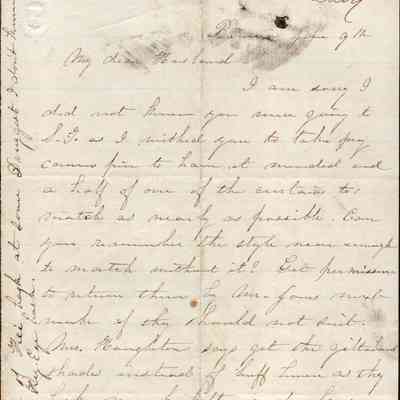 June 9th
My dear Husband
I am sorry I
did not know you were going to
S.F. as I wished you to take my
cameo pin to have it mended and
a half of one of the curtains to
match as nearly as possible. Can
you remember the style near enough
to match without it? Get permission
to return them by Mr. next
week if they should not suit.
Mrs. Houghton says get the
shade instead of buff linen as they
look
of Tree high at some Druggist I don't know